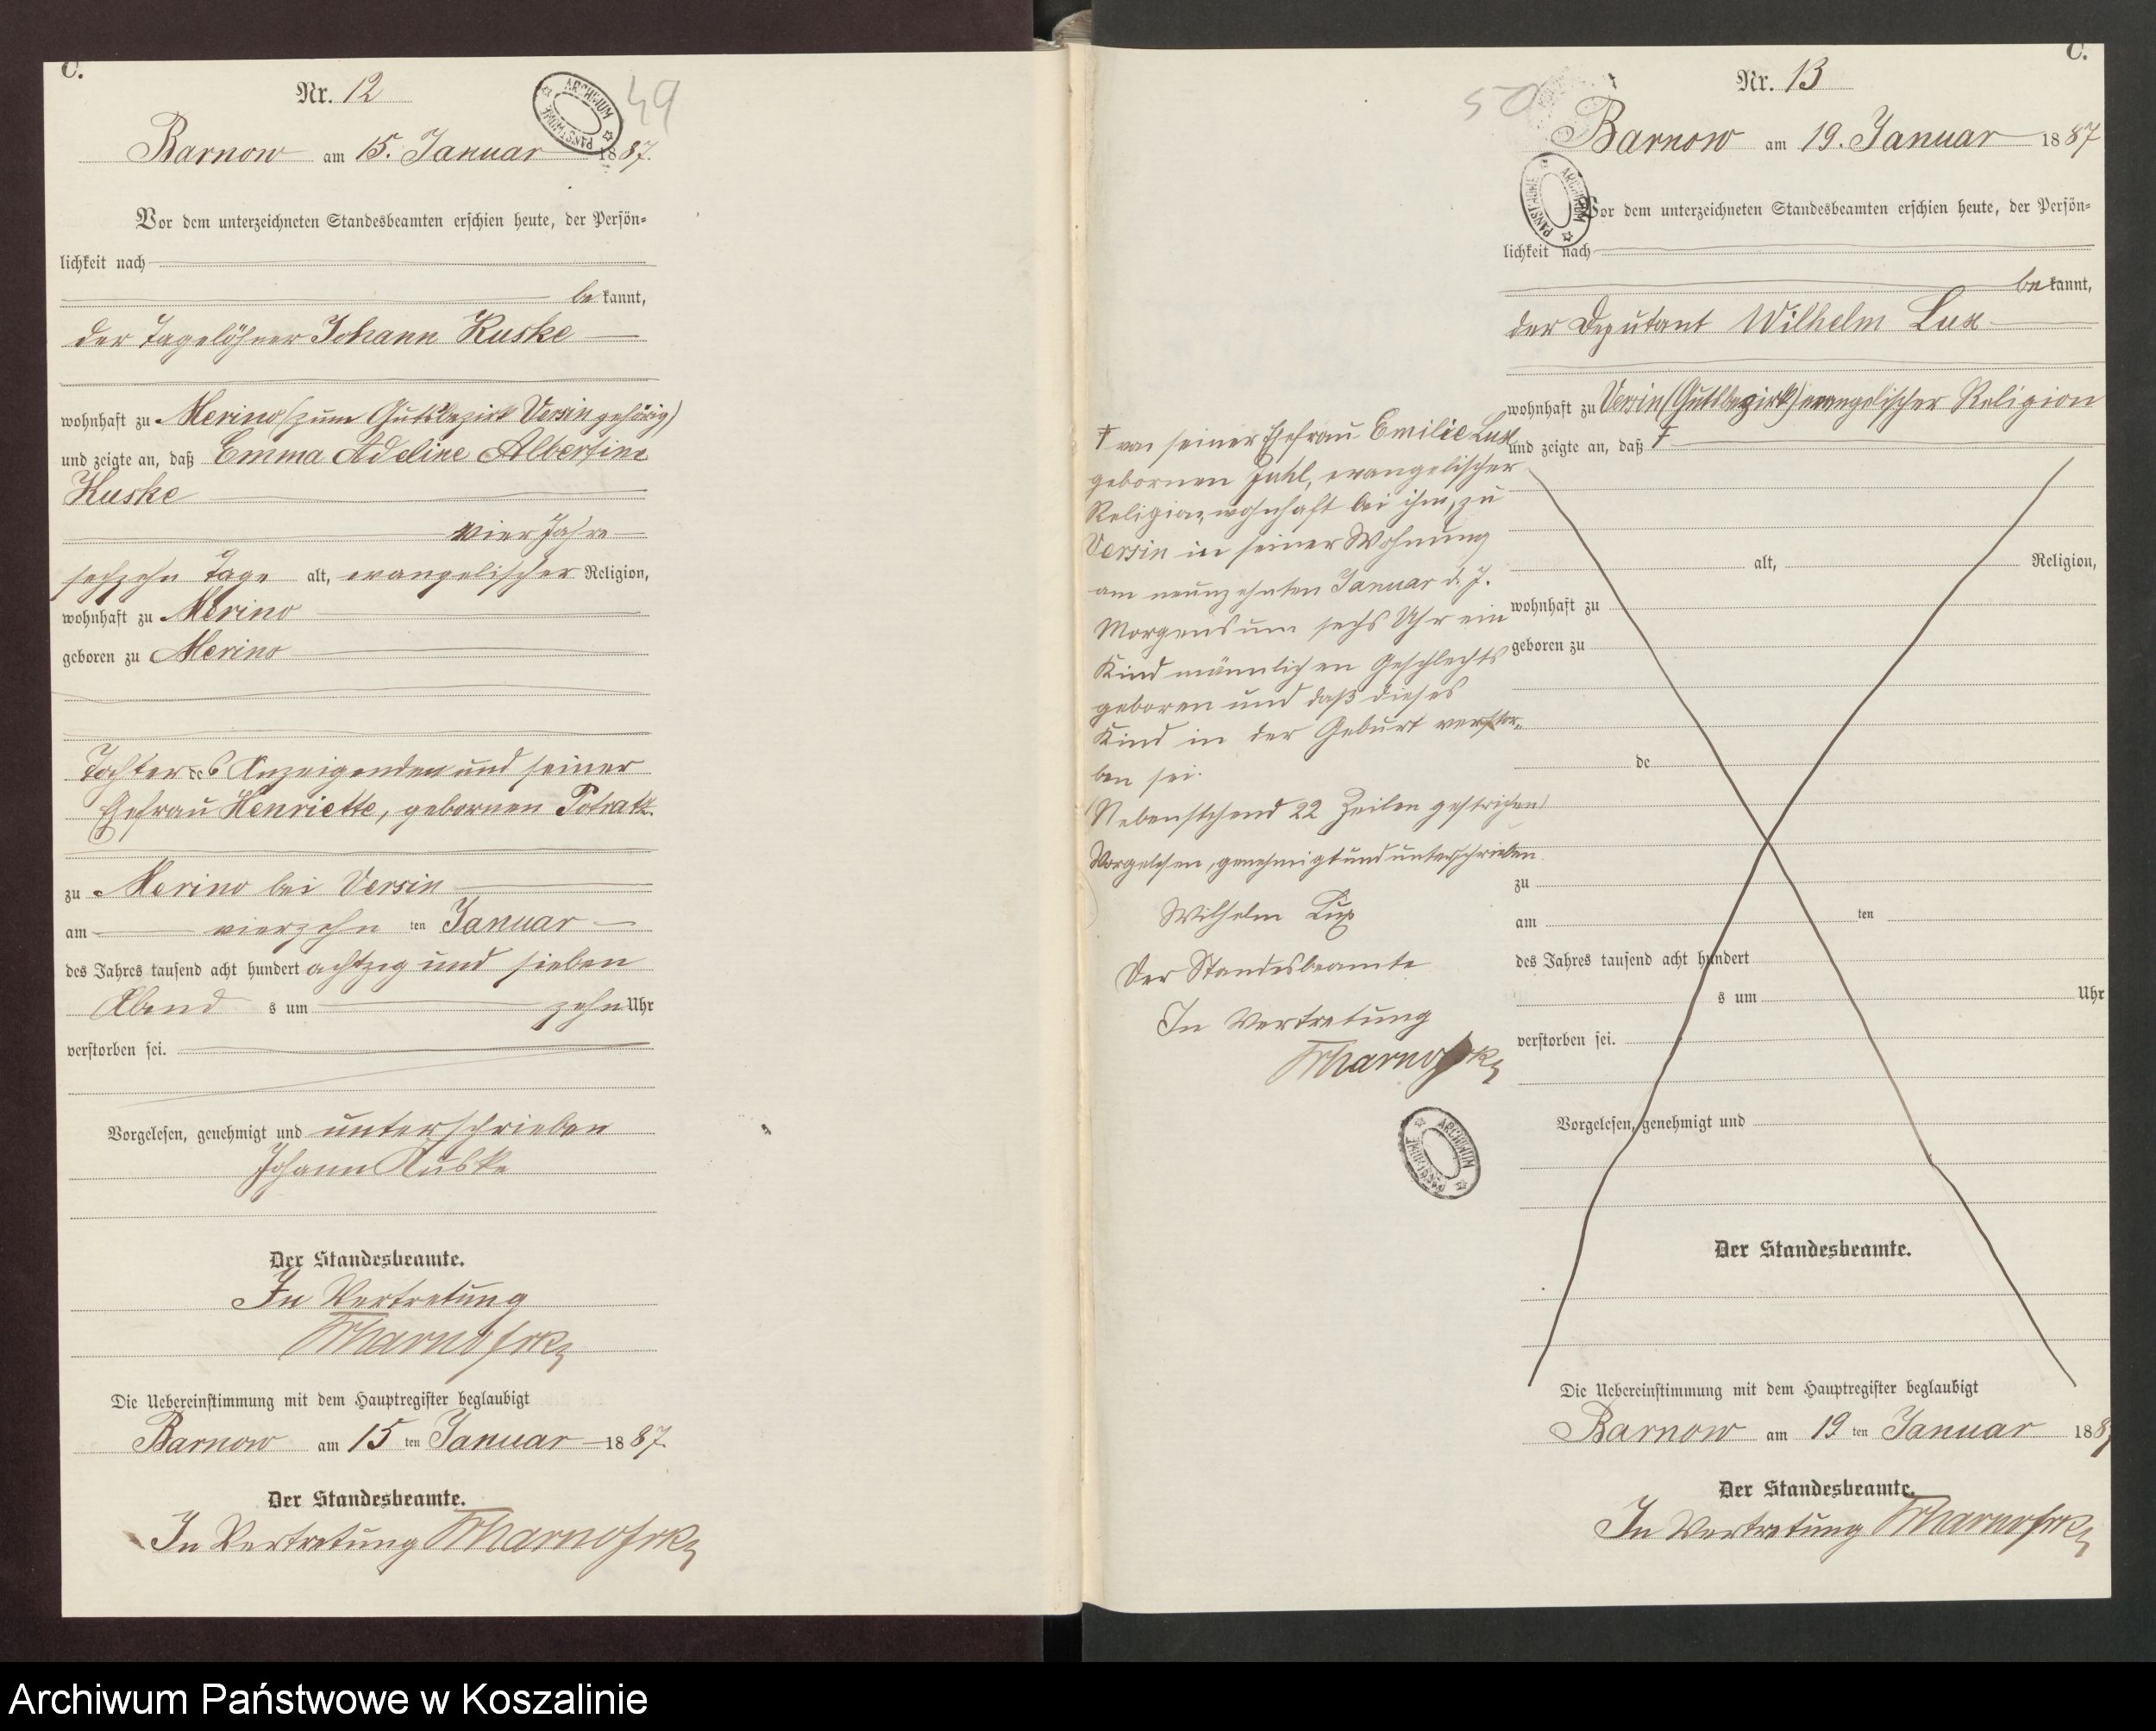 C.
Nr. 12
ARCHIWUM PAŃSTWOWE
49
Barnow am 15. Januar 1887.
Vor dem unterzeichneten Standesbeamten erschien heute, der Persön=
lichkeit nach
be kannt,
der Tagelöhner Johann Kuske
wohnhaft zu Merino (zum Gutsbezirk Versin gehörig)
und zeigte an, daß Emma Adeline Albertine
Kuske
vier Jahre
sechzehn Tage alt, evangelischer Religion,
wohnhaft zu Merino
geboren zu Merino
Tochter des Anzeigenden und seiner
Ehefrau Henriette, gebornen Potratz.
zu Merino bei Versin
am vierzehn ten Januar
des Jahres tausend acht hundert achtzig und sieben
Abend s um zehn Uhr
verstorben sei.
Vorgelesen, genehmigt und unterschrieben
Johann Kuske
Der Standesbeamte.
In Vertretung
Die Uebereinstimmung mit dem Hauptregister beglaubigt
Barnow am 15 ten Januar 1887.
Der Standesbeamte.
In Vertretung
C.
Nr. 13
50
Barnow am 19. Januar 1887
ARCHIWUM PAŃSTWOWE
Vor dem unterzeichneten Standesbeamten erschien heute, der Persön=
lichkeit nach
be kannt,
der Deputant Wilhelm Lux
wohnhaft zu Versin (Gutsbezirk) evangelischer Religion
und zeigte an, daß ‡
alt, Religion,
wohnhaft zu
geboren zu
de
zu
am ten
des Jahres tausend acht hundert
s um Uhr
verstorben sei.
Vorgelesen, genehmigt und
Der Standesbeamte.
‡ von seiner Ehefrau Emilie Lux
gebornen evangelischer
Religion, wohnhaft bei ihm, zu
Versin in seiner Wohnung
am neunzehnten Januar d. J.
Morgens um sechs Uhr ein
Kind männlichen Geschlechts
geboren und daß dieses
Kind in der Geburt verstor-
ben sei.
Nebenstehend 22 Zeilen gestrichen
Vorgelesen, genehmigt und unterschrieben
Wilhelm Lux
Der Standesbeamte
In Vertretung
ARCHIWUM PAŃSTWOWE
Die Uebereinstimmung mit dem Hauptregister beglaubigt
Barnow am 19 ten Januar 1887
Der Standesbeamte.
In Vertretung
Archiwum Państwowe w Koszalinie